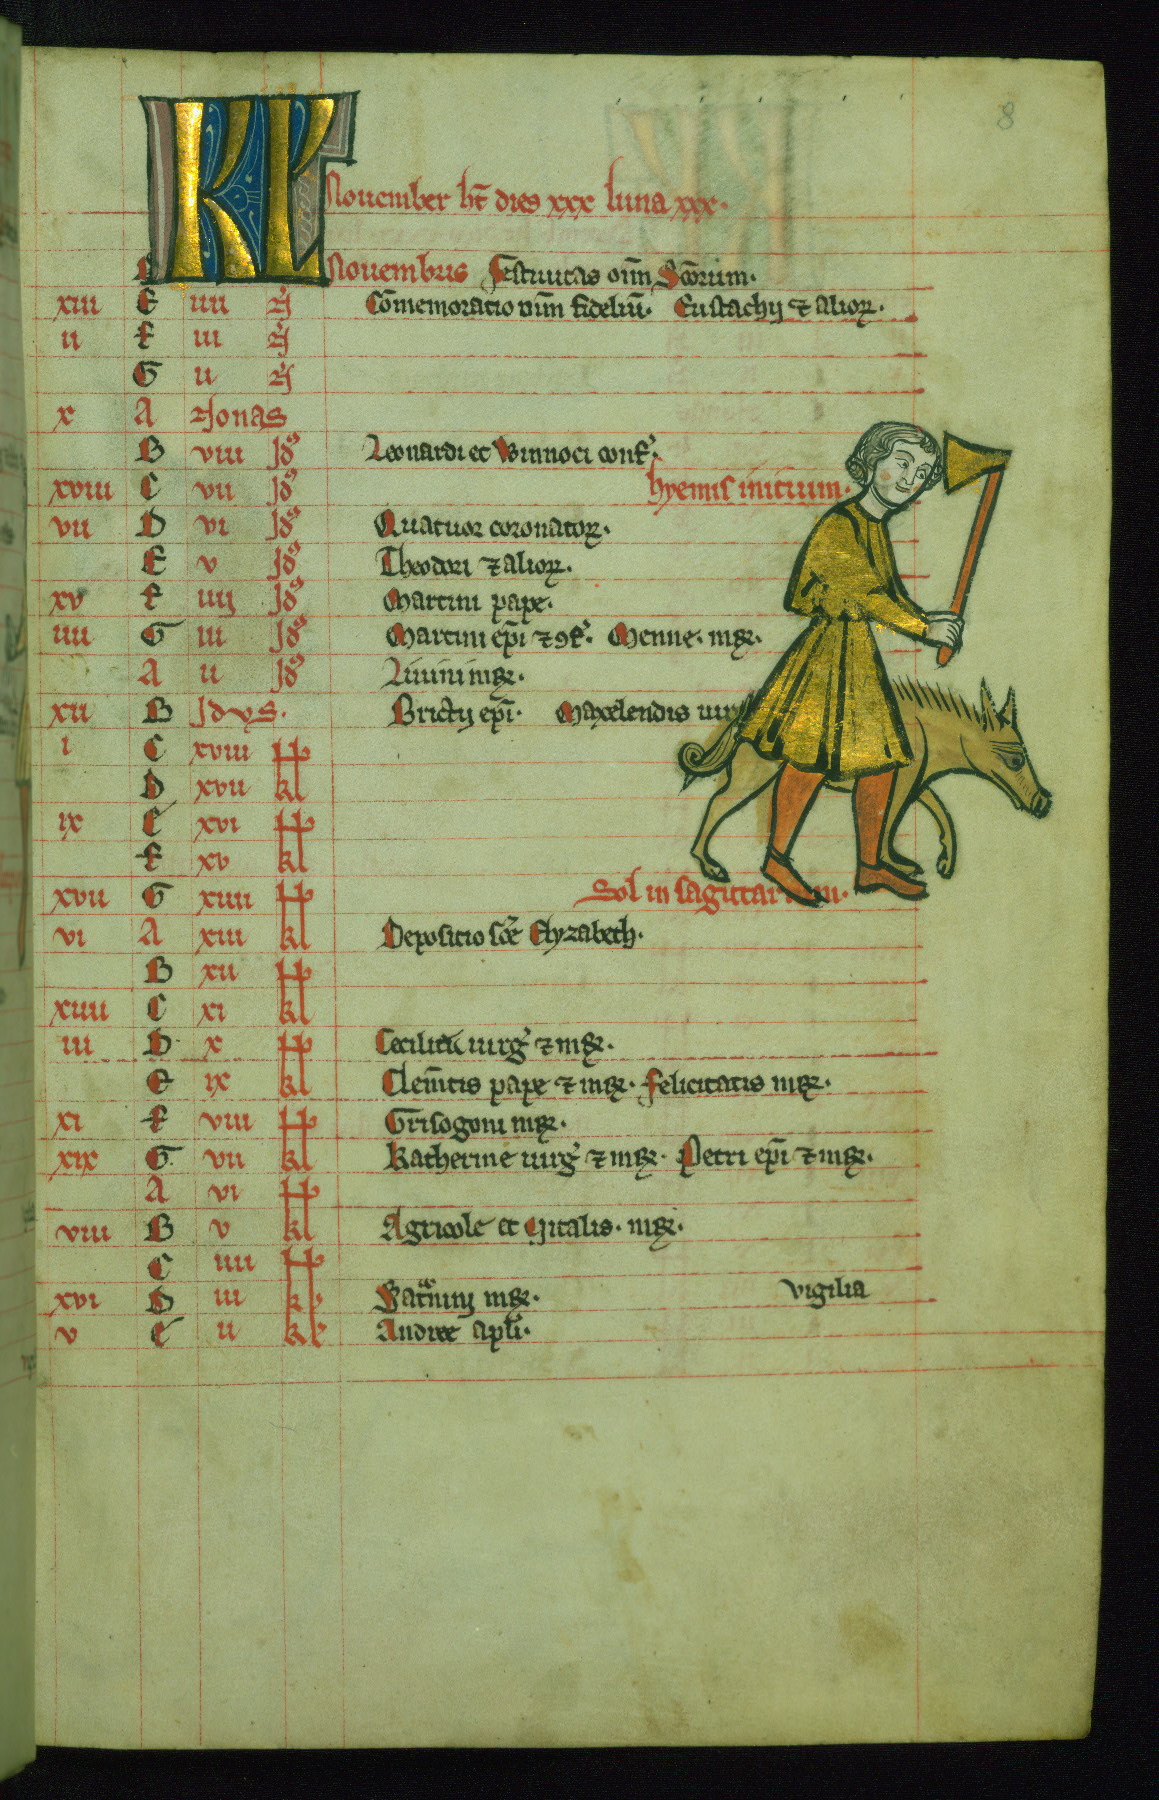 8
KL
Nouember ht̄ dies xxx luna xxx.
D Nouembris Festiuitas om̄ Sc̄orum.
xiii E iiii N Com̄emoratio om̄m fideliū. Eustachij ⁊ alioꝝ.
ii F iii N
G ii N
x A Nonas
B viii Jdꝰ Leonardi et Winnoci conf̉.
xviii C vii Jdꝰ hyemis initium.
vii D vi Jdꝰ Quatuor coronatoꝝ.
E v Jdꝰ Theodori ⁊ alioꝝ.
xv F iiij Jdꝰ Martini pape.
iiii G iii Jdꝰ Martini ep̄i ⁊ ꝯf̉. Menne. mr̄.
A ii Jdꝰ Liuini mr̄.
xii B Jdvs. Brictij ep̄i. Maxelendis uir
i C xviii kl
D xvii kl
ix E xvi kl
F xv kl
xvii G xiiii kl Sol in sagittarium.
vi A xiii kl Depositio sc̄e Elyzabeth.
B xii kl
xiiii C xi kl
iii D x kl Cecilie uirg̉ ⁊ mr̄.
E ix kl Clem̄tis pape ⁊ mr̄. Felicitatis mr̄.
xi F viii kl Grisogoni mr̄.
xix G vii kl Katherine uirg̉ ⁊ mr̄. Petri ep̄i ⁊ mr̄.
A vi kl
viii B v kl Agricole et Vitalis. mr̄.
C iiii kl
xvi D iii kl Sat̉nini mr̄. vigilia
v E ii kl Andree apl̄i.